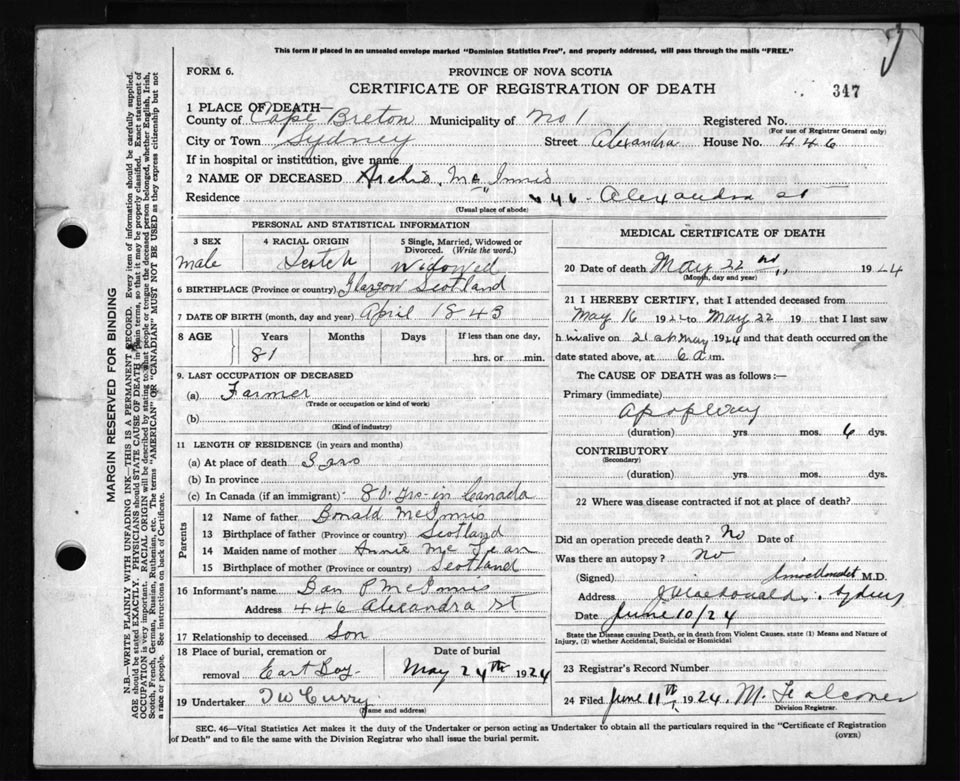 This form if placed in an unsealed envelope marked "Dominion Statistics Free", and properly addressed, will pass through the mails "FREE."
FORM 6.
PROVINCE OF NOVA SCOTIA
CERTIFICATE OF REGISTRATION OF DEATH
347
1 PLACE OF DEATH—
County of Cape Breton Municipality of No 1 Registered No.
(For use of Registrar General only)
City or Town Sydney Street Alexandra House No. 446
If in hospital or institution, give name
2 NAME OF DECEASED Archie Mc Innis
Residence 446 Alexandra St
(Usual place of abode)
PERSONAL AND STATISTICAL INFORMATION
3 SEX 4 RACIAL ORIGIN 5 Single, Married, Widowed or Divorced. (Write the word.)
male Scotch Widowed
6 BIRTHPLACE (Province or country) Glasgow Scotland
7 DATE OF BIRTH (month, day and year) April 1843
8 AGE Years Months Days If less than one day,
81 hrs. or min.
9. LAST OCCUPATION OF DECEASED
(a) Farmer
(Trade or occupation or kind of work)
(b)
(Kind of industry)
11 LENGTH OF RESIDENCE (in years and months)
(a) At place of death
(b) In province
(c) In Canada (if an immigrant) 80 yrs in Canada
Parents
12 Name of father Donald McInnis
13 Birthplace of father (Province or country) Scotland
14 Maiden name of mother Annie Mc
15 Birthplace of mother (Province or country) Scotland
16 Informant's name Dan P McInnis
Address 446 Alexandra St
17 Relationship to deceased Son
18 Place of burial, cremation or removal Date of burial
East Bay May 24th 1924
19 Undertaker T W Curry
(name and address)
MEDICAL CERTIFICATE OF DEATH
20 Date of death May 22nd 1924
(Month, day and year)
21 I HEREBY CERTIFY, that I attended deceased from
May 16 192 to May 22 19 that I last saw
him alive on 21st May 1924 and that death occurred on the
date stated above, at 6 a.m.
The CAUSE OF DEATH was as follows:—
Primary (immediate)
Apoplexy
(duration) yrs mos. 6 dys.
CONTRIBUTORY
(Secondary)
(duration) yrs. mos. dys.
22 Where was disease contracted if not at place of death?
Did an operation precede death? No Date of
Was there an autopsy? No
(Signed) M.D.
Address Sydney
Date June 10/24
State the Disease causing Death, or in death from Violent Causes, state (1) Means and Nature of Injury, (2) whether Accidental, Suicidal or Homicidal
23 Registrar's Record Number
24 Filed June 11th 1924. M. Falconer
Division Registrar.
SEC. 46—Vital Statistics Act makes it the duty of the Undertaker or person acting as Undertaker to obtain all the particulars required in the "Certificate of Registration
of Death" and to file the same with the Division Registrar who shall issue the burial permit.
(OVER)
MARGIN RESERVED FOR BINDING
N.B.—WRITE PLAINLY WITH UNFADING INK—THIS IS A PERMANENT RECORD. Every item of information should be carefully supplied.
AGE should be stated EXACTLY. PHYSICIANS should STATE CAUSE OF DEATH in plain terms, so that it may be properly classified. Exact statement of
OCCUPATION is very important. RACIAL ORIGIN will be described by stating to what people or tongue the deceased person belonged, whether English, Irish,
Scotch, French, German, Russian, Ruthenian, etc. The terms "AMERICAN" OR "CANADIAN" MUST NOT BE USED as they express citizenship but not
a race or people. See instructions on back of Certificate.